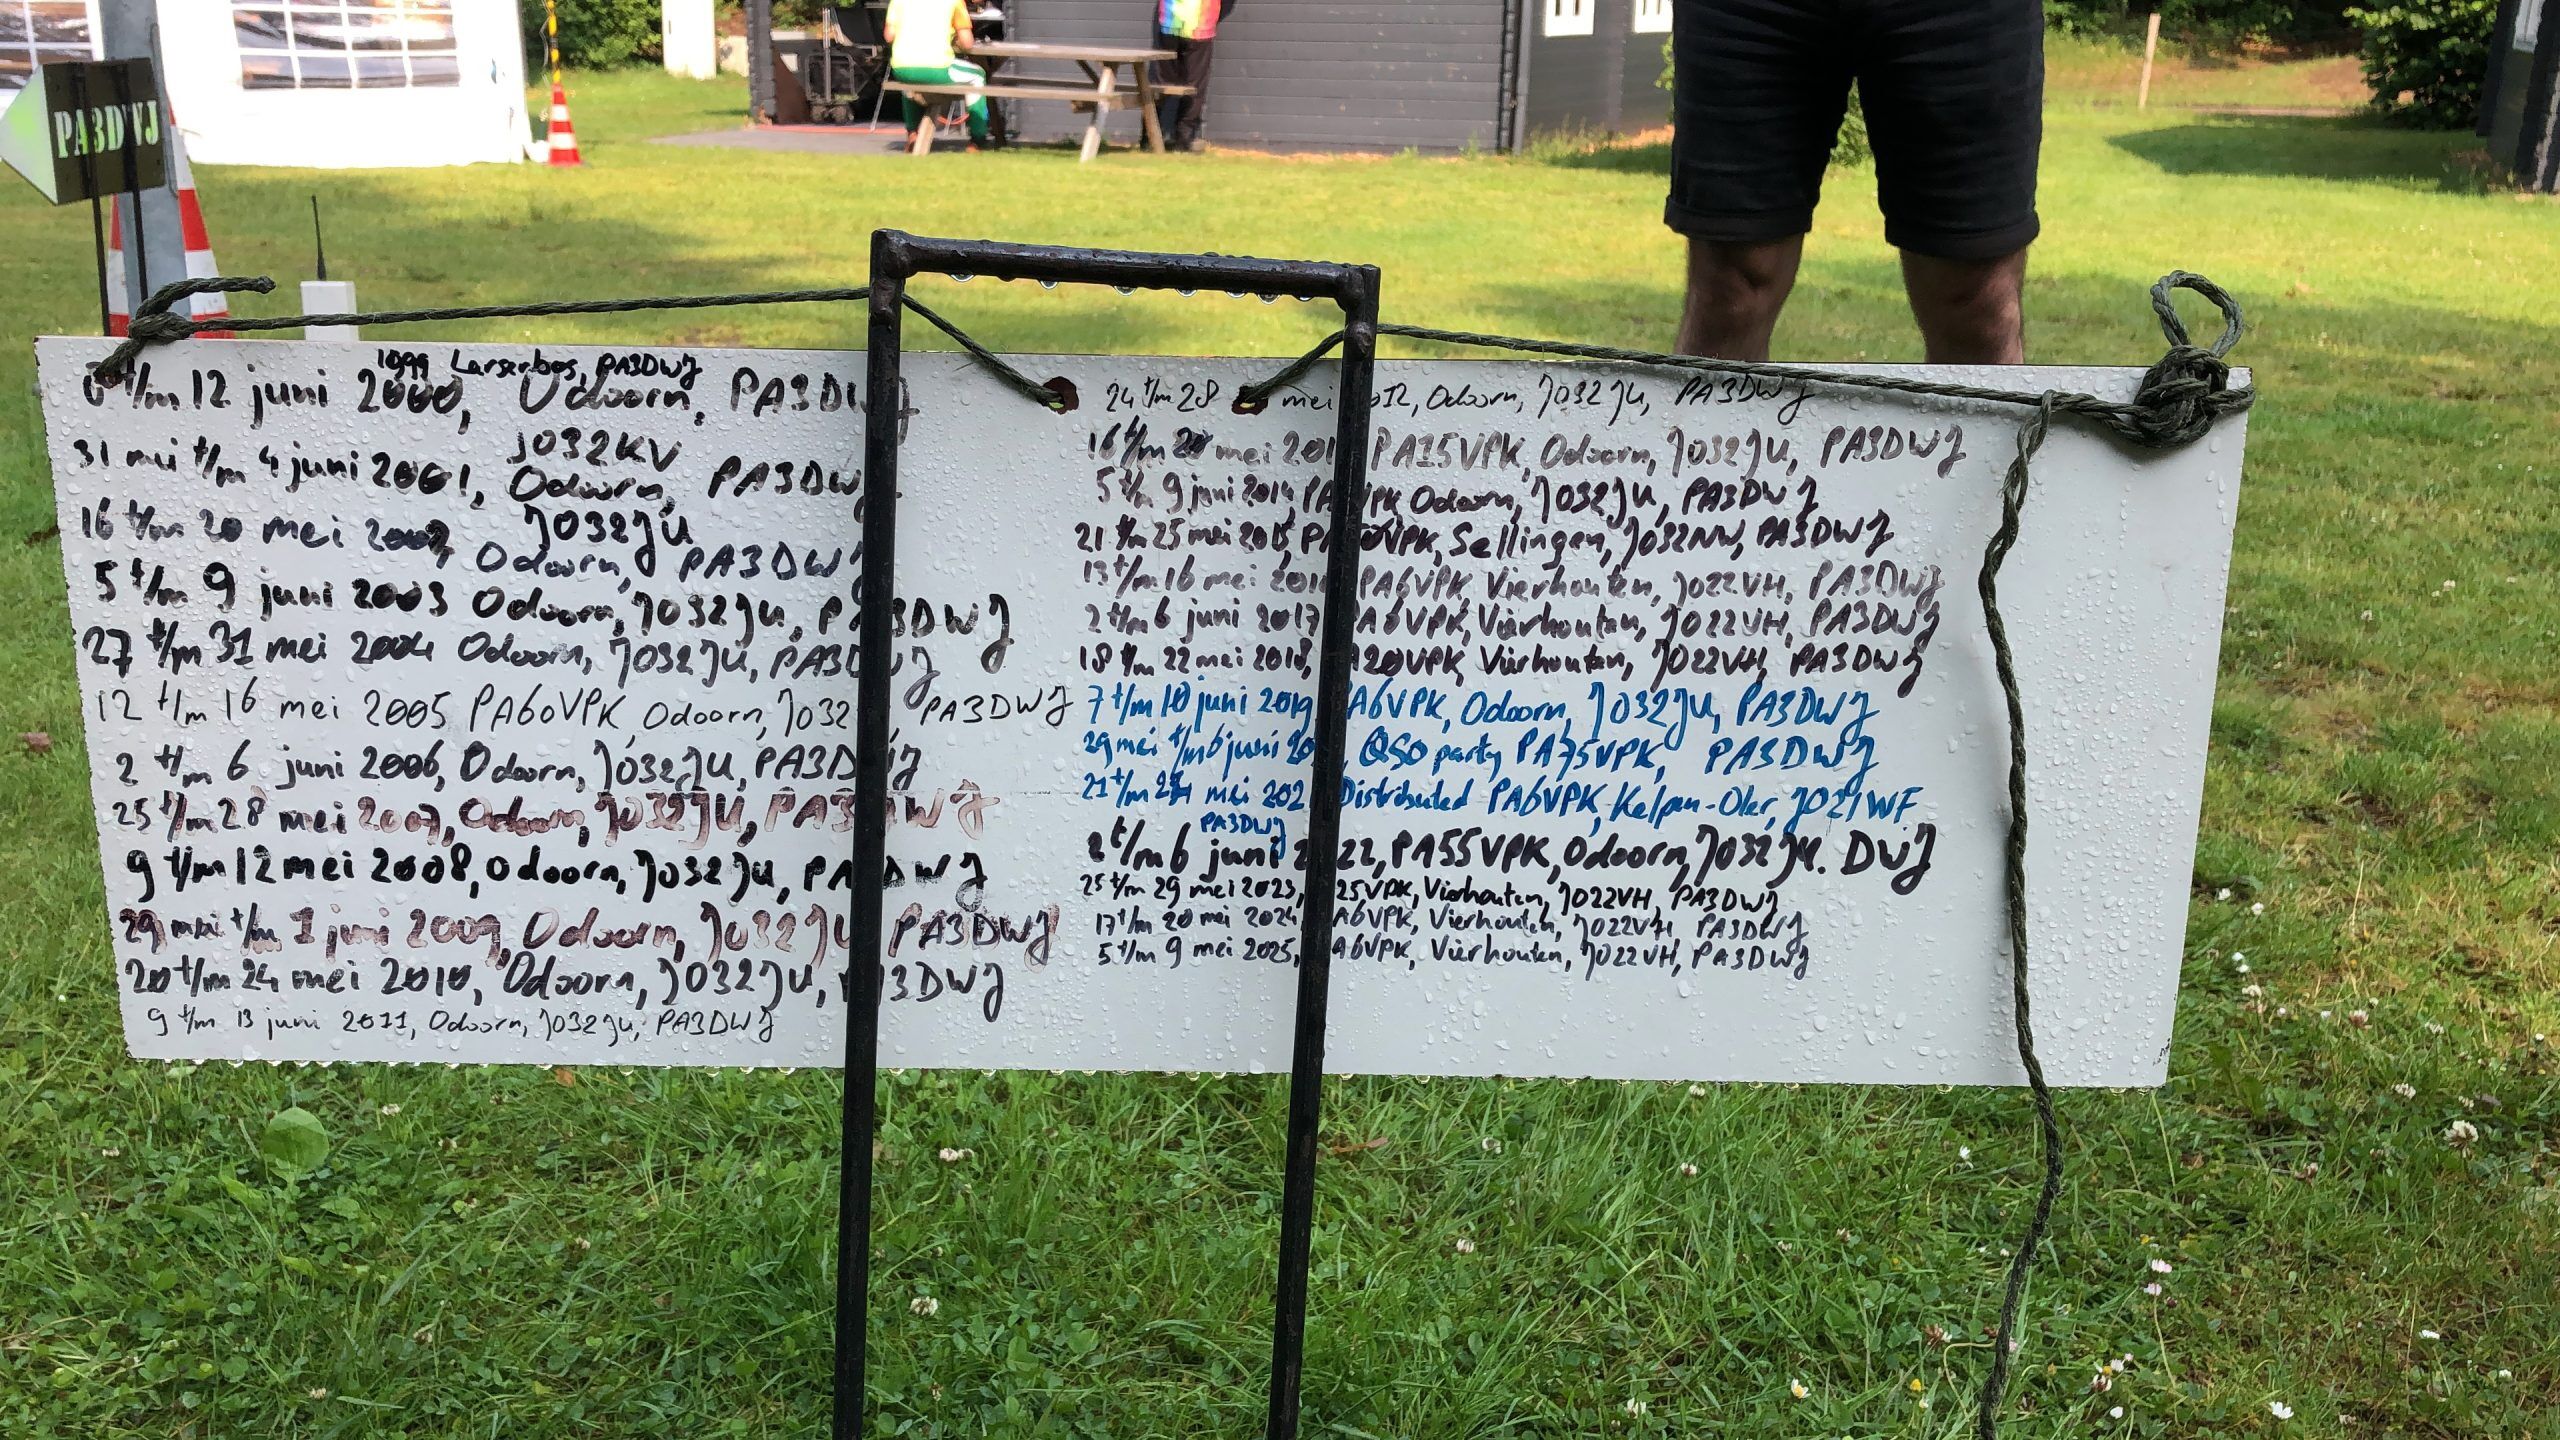 PA3DWJ
1999 Larserbos, PA3DWJ
t/m 12 juni 2000, Odoorn, PA3DWJ
JO32KV
31 mei t/m 4 juni 2001, Odoorn, PA3DWJ
JO32JU
16 t/m 20 mei 2002, Odoorn, PA3DWJ
5 t/m 9 juni 2003 Odoorn, JO32JU, PA3DWJ
27 t/m 31 mei 2004 Odoorn, JO32JU, PA3DWJ
12 t/m 16 mei 2005 PA60VPK, Odoorn, JO32 , PA3DWJ
2 t/m 6 juni 2006, Odoorn, JO32JU, PA3DWJ
25 t/m 28 mei 2007, Odoorn, JO32JU, PA3DWJ
9 t/m 12 mei 2008, Odoorn, JO32JU, PA3DWJ
29 mei t/m 1 juni 2009, Odoorn, JO32JU PA3DWJ
20 t/m 24 mei 2010, Odoorn, JO32JU, PA3DWJ
9 t/m 13 juni 2011, Odoorn, JO32JU, PA3DWJ
24 t/m 28 mei 012, Odoorn, JO32JU, PA3DWJ
16 t/m 20 mei 201 PA15VPK, Odoorn, JO32JU, PA3DWJ
5 t/m 9 juni 2014, PA VPK Odoorn, JO32JU, PA3DWJ
21 t/m 25 mei 2015, PA 0VPK, Sellingen, JO32NW, PA3DWJ
13 t/m 16 mei 201 PA6VPK Vierhouten, JO22VH, PA3DWJ
2 t/m 6 juni 2017 A6VPK, Vierhouten, JO22VH, PA3DWJ
18 t/m 22 mei 2018, A20VPK, Vierhouten, JO22VH, PA3DWJ
7 t/m 10 juni 2019 A6VPK, Odoorn, JO32JU, PA3DWJ
29 mei t/m 6 juni 20 , QSO party PA75VPK, PA3DWJ
21 t/m 24 mei 202 Distributed PA6VPK, Kelpen-Oler, JO21WF
PA3DWJ
2 t/m 6 juni 2022, PA55VPK, Odoorn, JO32JU. DWJ
25 t/m 29 mei 2023, 25VPK, Vierhouten, JO22VH, PA3DWJ
17 t/m 20 mei 2024, A6VPK, Vierhouten, JO22VH, PA3DWJ
5 t/m 9 mei 2025, A6VPK, Vierhouten, JO22VH, PA3DWJ